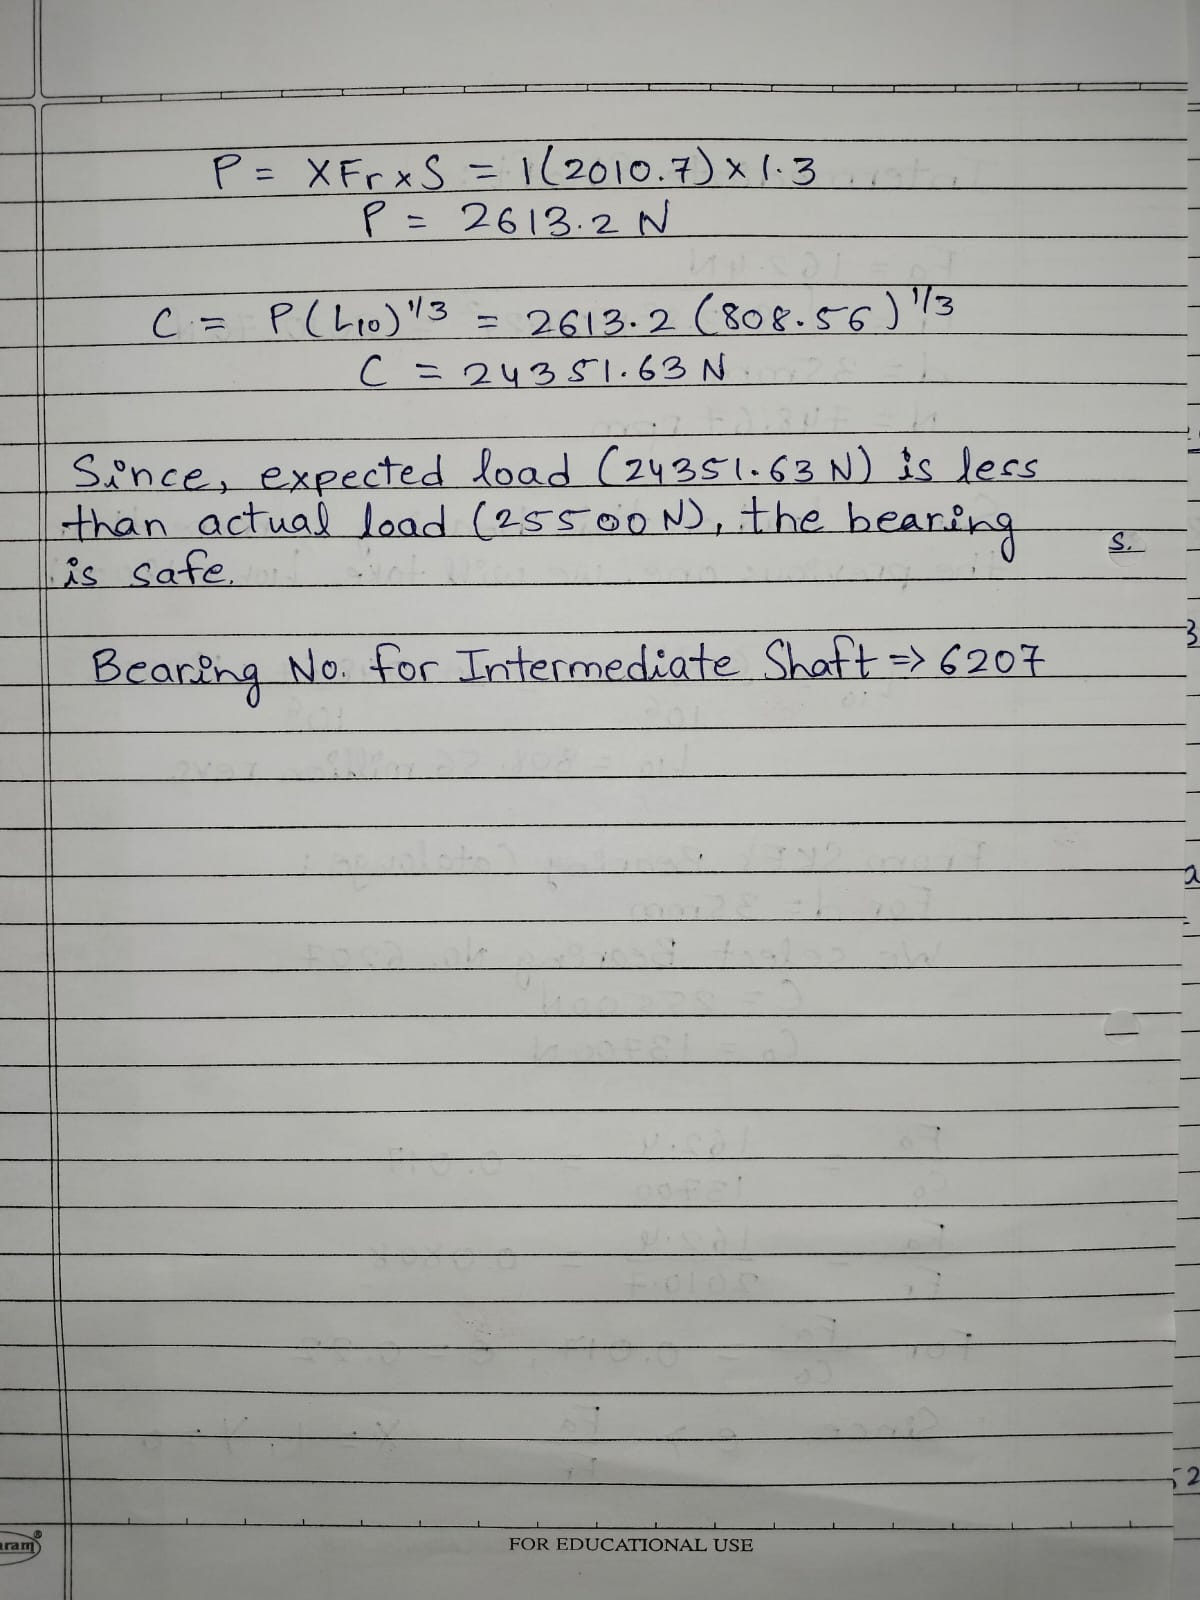 P = XFr x S = 1(2010.7) x 1.3
P = 2613.2 N
C = P(L10)^1/3 = 2613.2 (808.56)^1/3
C = 24351.63 N
Since, expected load (24351.63 N) is less
than actual load (25500 N), the bearing
is safe.
Bearing No. for Intermediate Shaft => 6207
S.
3
a
52
FOR EDUCATIONAL USE